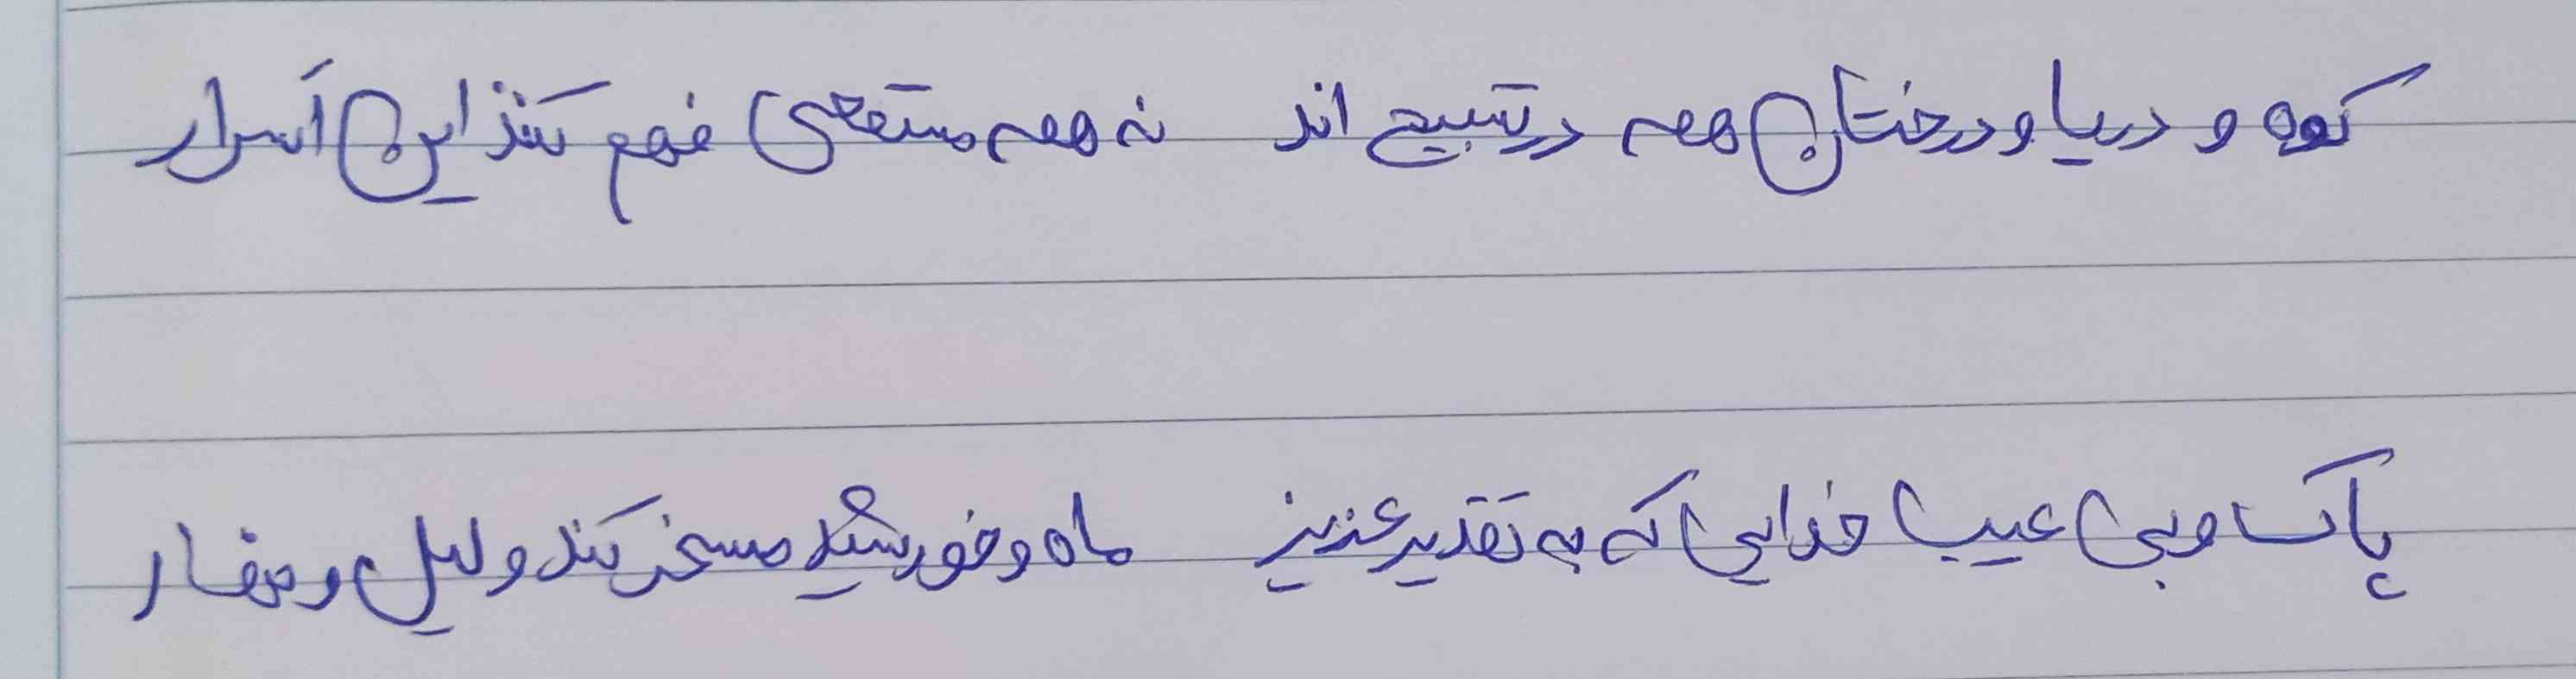 کوه و دریا و درختان همه در تسبیح اند نه همه مستمعی فهم کند این اسرار
پاک و بی عیب خدایی که به تقدیر عزیز ماه و خورشید مسخر کند و لیل و نهار